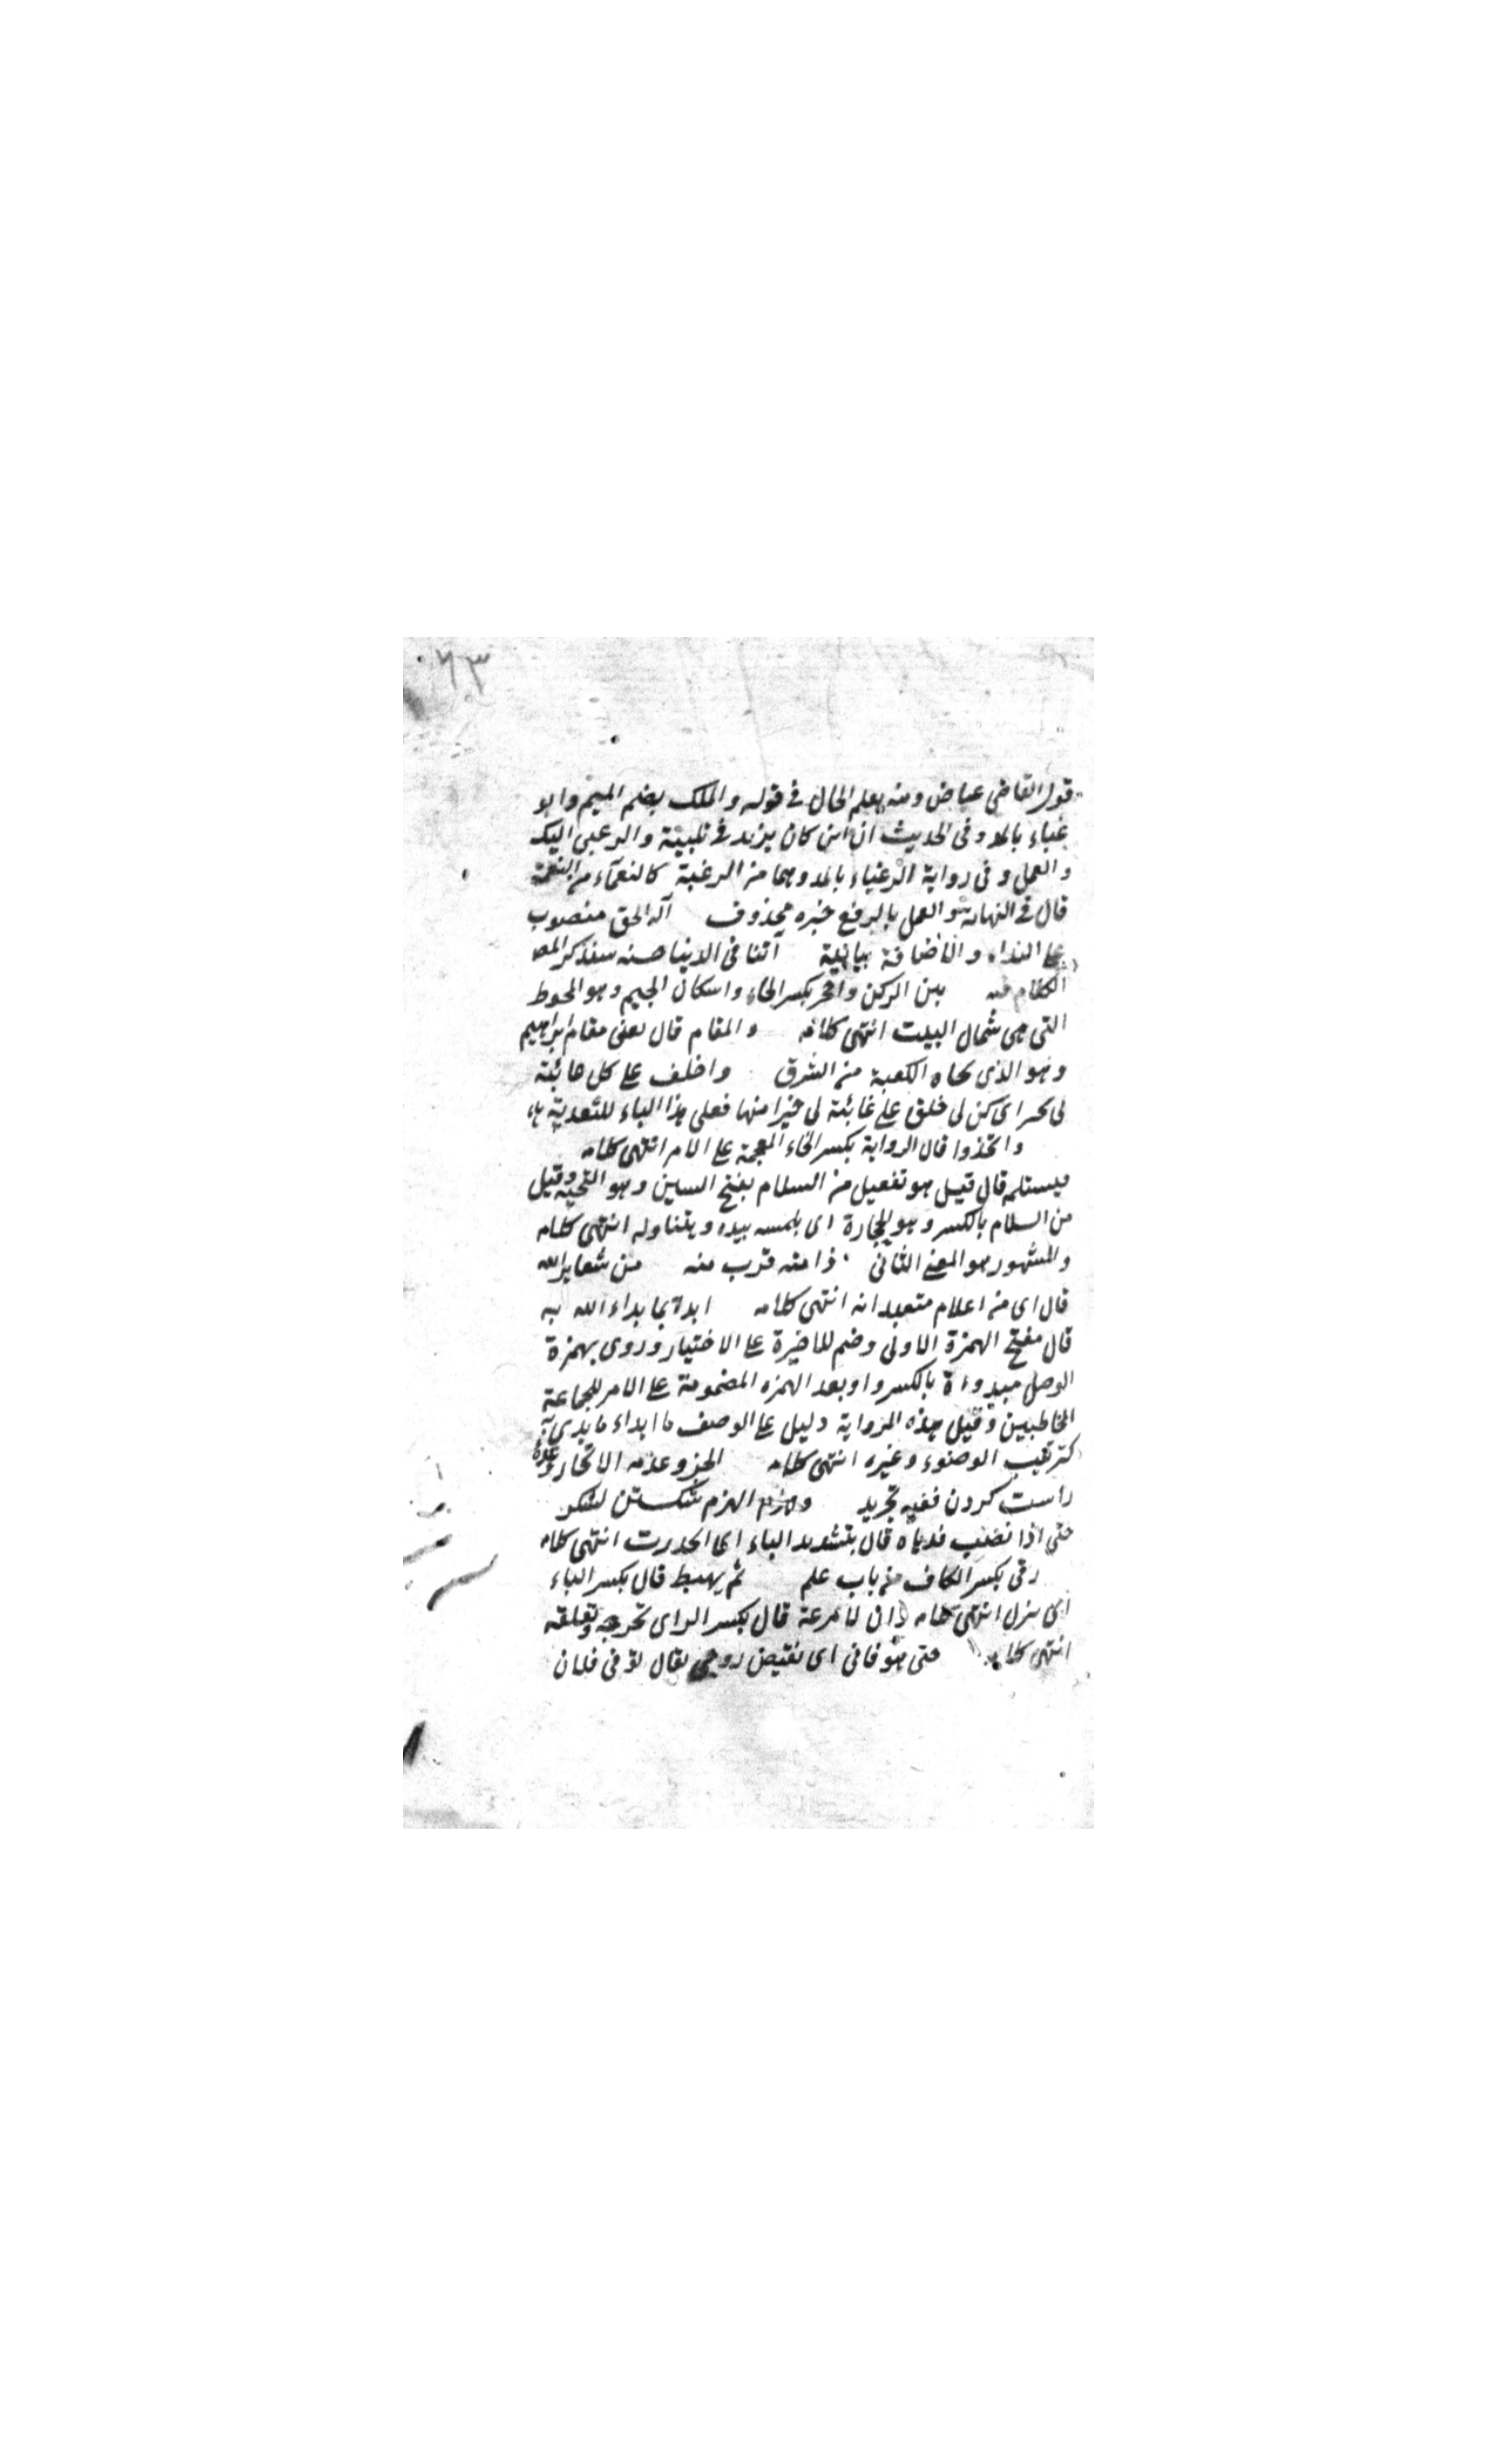 ٦٣
قول القاضي عياض ومنه يعلم الحال في قوله والملك بضم الميم وابو
غباء بالمد وفي الحديث ان ابن كان يزيد في تلبيته والرغبى اليك
والعمل وفي رواية الرغباء بالمد وهما من الرغبة كالنعماء من النعمة
قال في النهاية والعمل بالرفع خبره محذوف آله الحق منصوب
على النداء والاضافة بيانية آتنا في الدنيا حسنة سنذكر المص
الكلام فيه بين الركن والحجر بكسر الحاء واسكان الجيم وهو المحوط
التي هي شمال البيت انتهى كلامه والمقام قال يعني مقام ابراهيم
وهو الذي تجاه الكعبة من الشرق واخلف على كل غائبة
لي بخير اي كن لي خلف على غائبة لي خيرا منها فعلى هذا الباء للتعدية
واتخذوا قال الرواية بكسر الخاء المعجمة على الامر انتهى كلامه
فيستلمه قال قيل هو تفعيل من السلام بفتح السين وهو التحية وقيل
من السلام بالكسر وهو الحجارة اى يلمسه بيده ويتناوله انتهى كلامه
والمشهور هو المعنى الثاني منه قرب منه من شعاير الله
قال اي من اعلام متعبداته انتهى كلامه ابدا بما بداء الله به
قال مفتح الهمزة الاولى وضم للاخيرة على الاختيار وروى بهمزة
الوصل بالكسر واو بعد الهمزه المضمومة على الامر للجماعة
المخاطبين وقيل هذه الرواية دليل على الوصف ما ابداء ما بدى به
كترتيب الوضوء وغيره انتهى كلامه انجز وعده الانجاز وعده
راست كردن ففيه تجريد وهزم الهزم شكستن لشكر
حتى اذا نصبت قدماه قال بتشديد الباء اى انحدرت انتهى كلامه
رقى بكسر الكاف من باب علم ثم يهبط قال بكسر الباء
اى ينزل انتهى كلامه وان لا تنزعه قال بكسر الزاى تخرجه وتقلعه
انتهى كلامه حتى توفاني اى تقبض روحي يقال توفى فلان